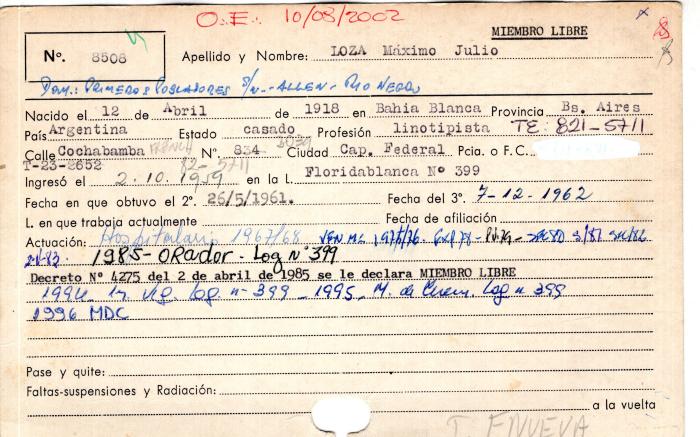 O.E. 10/08/2002
MIEMBRO LIBRE
Nº. 8508 Apellido y Nombre: LOZA Máximo Julio
Dom.: Primeros Pobladores S/N - Allen - Rio Negro
Nacido el 12 de Abril de 1918 en Bahia Blanca Provincia Bs. Aires
País Argentina Estado casado Profesión linotipista TE: 821-5711
Calle Cochabamba Nº. 834 Ciudad Cap. Federal Pcia. o F.C.
T-23-2652 82-5711
Ingresó el 2.10.1959 en la L. Floridablanca Nº 399
Fecha en que obtuvo el 2º. 26/5/1961. Fecha del 3º. 7-12-1962
L. en que trabaja actualmente Fecha de afiliación:
Actuación: Hospitalario 1967/68
1985-Orador-Log Nº 399
Decreto Nº 4275 del 2 de abril de 1985 se le declara MIEMBRO LIBRE
1994 1r. Vig. Log. nº 399 - 1995 - M. de Cerem. Log nº 399
1996 MDC
Pase y quite:
Faltas-suspensiones y Radiación:
a la vuelta